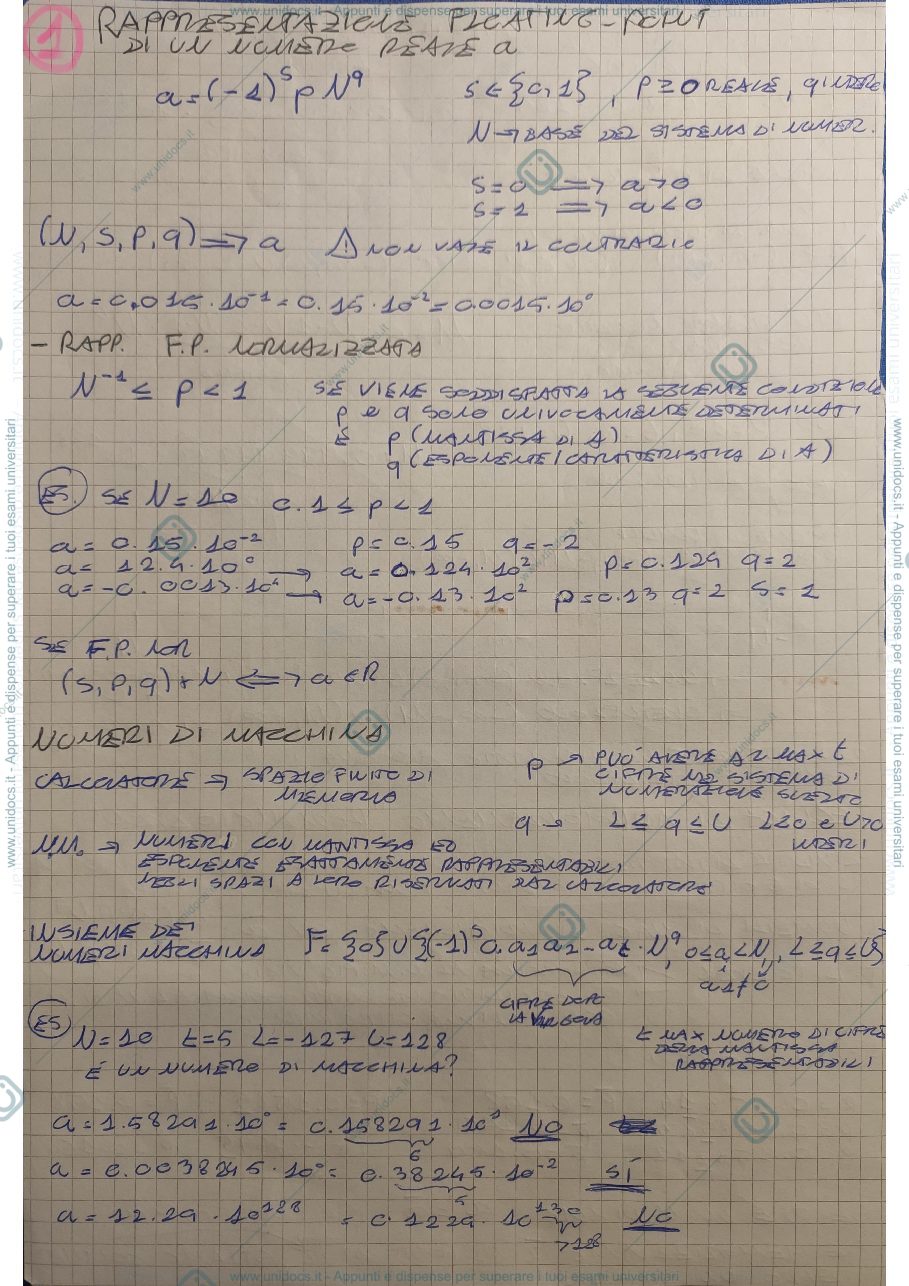 www.unidocs.it - Appunti e dispense per superare i tuoi esami universitari
1
RAPPRESENTAZIONE FLOATING-POINT
DI UN NUMERO REALE a
a=(-1)^S p N^q
S∈{0,1}, P≥0 REALE, q INTERO
N→BASE DEL SISTEMA DI NUMER.
S=0 ⟹ a>0
S=1 ⟹ a<0
(N,S,P,q)⟹a ⚠ NON VALE IL CONTRARIO
a=0.015·10^-1=0.15·10^-2=0.0015·10^0
- RAPP. F.P. NORMALIZZATA
N^-1 ≤ P < 1
SE VIENE SODDISFATTA LA SEGUENTE CONDIZIONE
P e q SONO UNIVOCAMENTE DETERMINATI
È P (MANTISSA DI A)
q (ESPONENTE/CARATTERISTICA DI A)
ES. SE N=10 0.1≤P<1
a= 0.15·10^-2 P=0.15 q=-2
a= 12.4·10^0 → a=0.124·10^2 P=0.124 q=2
a=-0.0013·10^4 → a=-0.13·10^2 P=0.13 q=2 S=1
SE F.P. NOR
(S,P,q)+N ⟺ a∈R
NUMERI DI MACCHINA
CALCOLATORE → SPAZIO FINITO DI
MEMORIA
P → PUÒ AVERE AL MAX t
CIFRE NEL SISTEMA DI
NUMERAZIONE SCELTO
q → L≤q≤U L<0 e U>0
INTERI
N.M. → NUMERI CON MANTISSA ED
ESPONENTE ESATTAMENTE RAPPRESENTABILI
NEGLI SPAZI A LORO RISERVATI DAL CALCOLATORE
INSIEME DEI
NUMERI MACCHINA
F={0}∪{(-1)^S 0.a1a2-at·N^q, 0≤ai<N, L≥q≤U}
a1≠0
CIFRE DOPO
LA VIRGOLA
ES N=10 t=5 L=-127 U=128
È UN NUMERO DI MACCHINA?
t MAX NUMERO DI CIFRE
DELLA MANTISSA
RAPPRESENTABILI
a=1.58291·10^0= 0.158291·10^1 NO
6
a=0.0038245·10^0= 0.38245·10^-2 SÌ
5
a=12.29·10^128 =0.1229·10^130 NO
>128
www.unidocs.it - Appunti e dispense per superare i tuoi esami universitari